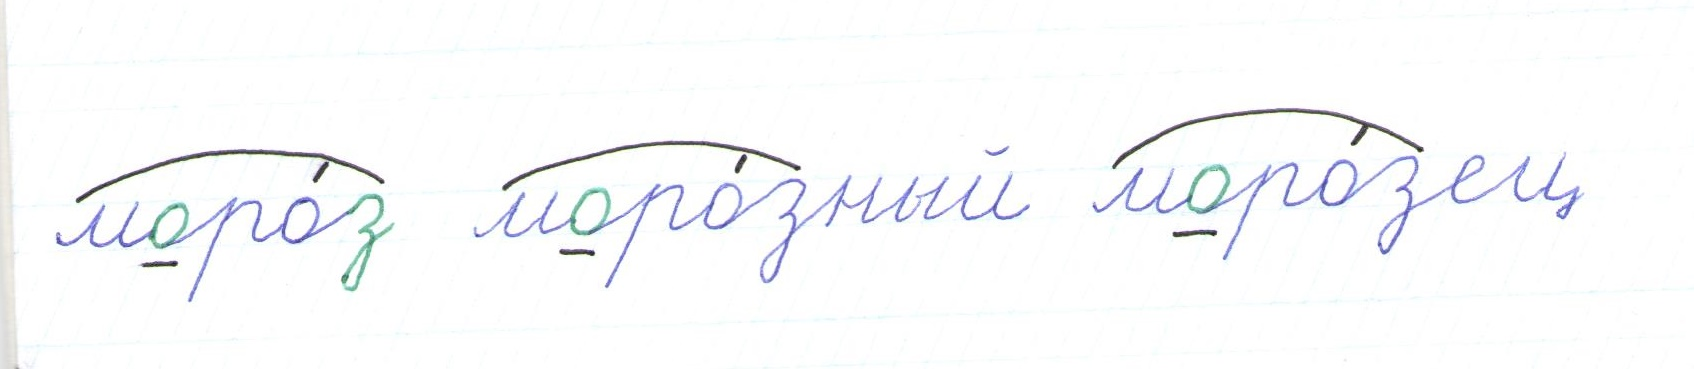 моро́з моро́зный моро́зец